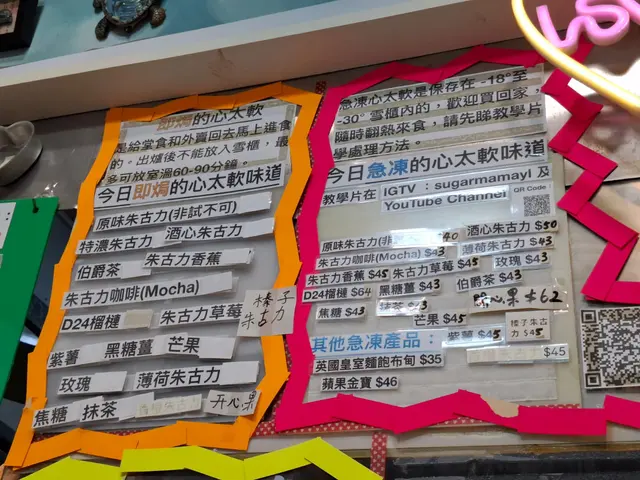 即焗的心太軟
是給堂食和外賣回去馬上進食
的。出爐後不能放入雪櫃，最
多可放室溫60-90分鐘。
今日即焗的心太軟味道
原味朱古力(非試不可)
特濃朱古力 酒心朱古力
伯爵茶 朱古力香蕉
朱古力咖啡(Mocha)
D24榴槤 朱古力草莓 榛子朱古力
紫薯 黑糖薑 芒果
玫瑰 薄荷朱古力
焦糖 抹茶 開心果
急凍心太軟是保存在 -18°至
-30° 雪櫃內的，歡迎買回家，
隨時翻熱來食，請先睇教學片
學處理方法。
今日急凍的心太軟味道
教學片在 IGTV : sugarmamayl 及
YouTube Channel
QR Code
原味朱古力(非 $40 酒心朱古力 $50
朱古力咖啡(Mocha) $43 薄荷朱古力 $43
朱古力香蕉 $45 朱古力草莓 $45 玫瑰 $43
D24榴槤 $64 黑糖薑 $43 伯爵茶 $43
焦糖 $43 抹茶 $43 開心果 $62
芒果 $45 紫薯 $45 榛子朱古力 $45
其他急凍產品：
英國皇室麵飽布甸 $35
$45
蘋果金寶 $46